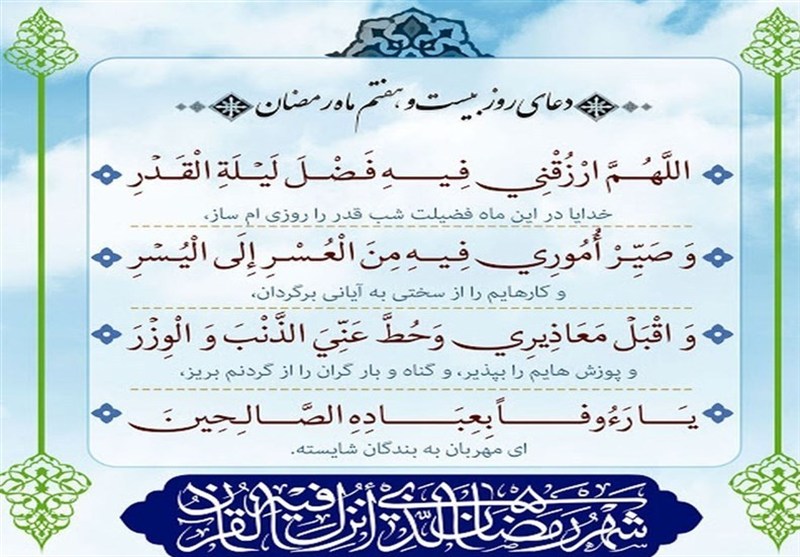 دعای روز بیست و هفتم ماه رمضان
اللَّهُمَّ ارْزُقْنِي فِيهِ فَضْلَ لَيْلَةِ الْقَدْرِ
خدایا در این ماه فضیلت شب قدر را روزی ام ساز،
وَ صَيِّرْ أُمُورِي فِيهِ مِنَ الْعُسْرِ إِلَى الْيُسْرِ
و کارهایم را از سختی به آیانی برگردان،
وَ اقْبَلْ مَعَاذِيرِي وَحُطَّ عَنِّيَ الذَّنْبَ وَ الْوِزْرَ
و پوزش هایم را بپذیر، و گناه و بار گران را از گردنم بریز،
يَا رَءُوفاً بِعِبَادِهِ الصَّالِحِينَ
ای مهربان به بندگان شایسته.
شَهْرُ رَمَضَانَ الَّذِي أُنْزِلَ فِيهِ الْقُرْآنُ